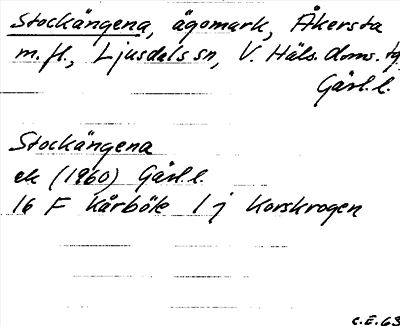 Stockängena, ägomark, Åkersta
m.fl., Ljusdals sn, V. Häls. doms. tg
Gävl.l.
Stockängena
ek (1960) Gävl.l.
16 F Kårböle 1 j Korskrogen
C.E.63